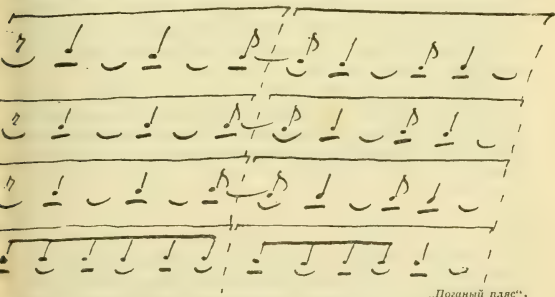 „Поганый пляс“.